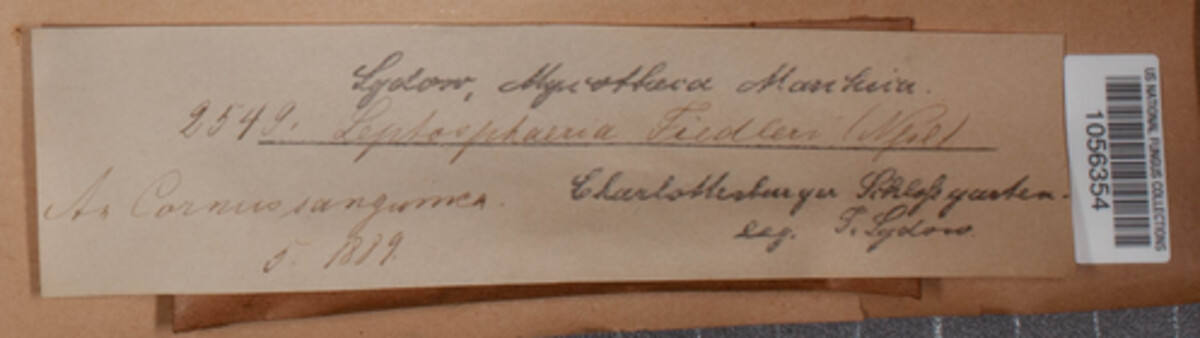 Sydow, Mycotheca Marchica.
2549. Leptosphaeria Fiedleri (Npel)
An Cornus sanguinea. Charlottenburger Schloßgarten.
5. 1889. leg. P. Sydow.
US NATIONAL FUNGUS COLLECTIONS
1056354